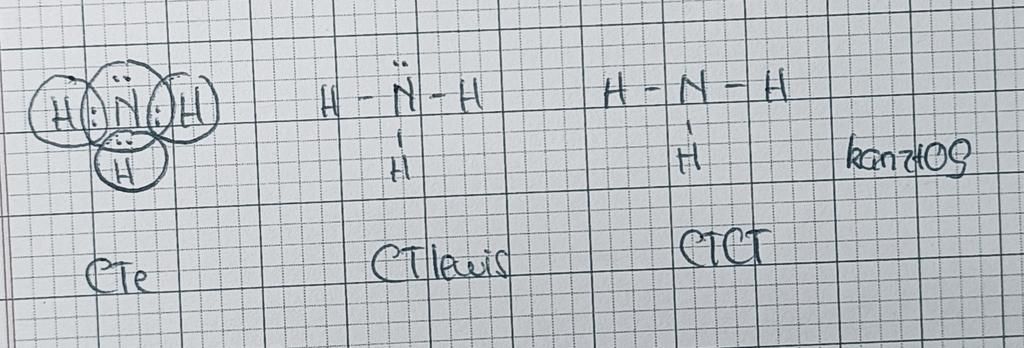 H : N̈ : H H - N̈ - H H - N - H
H H H kanzt09
CTe CTlewis CTCT